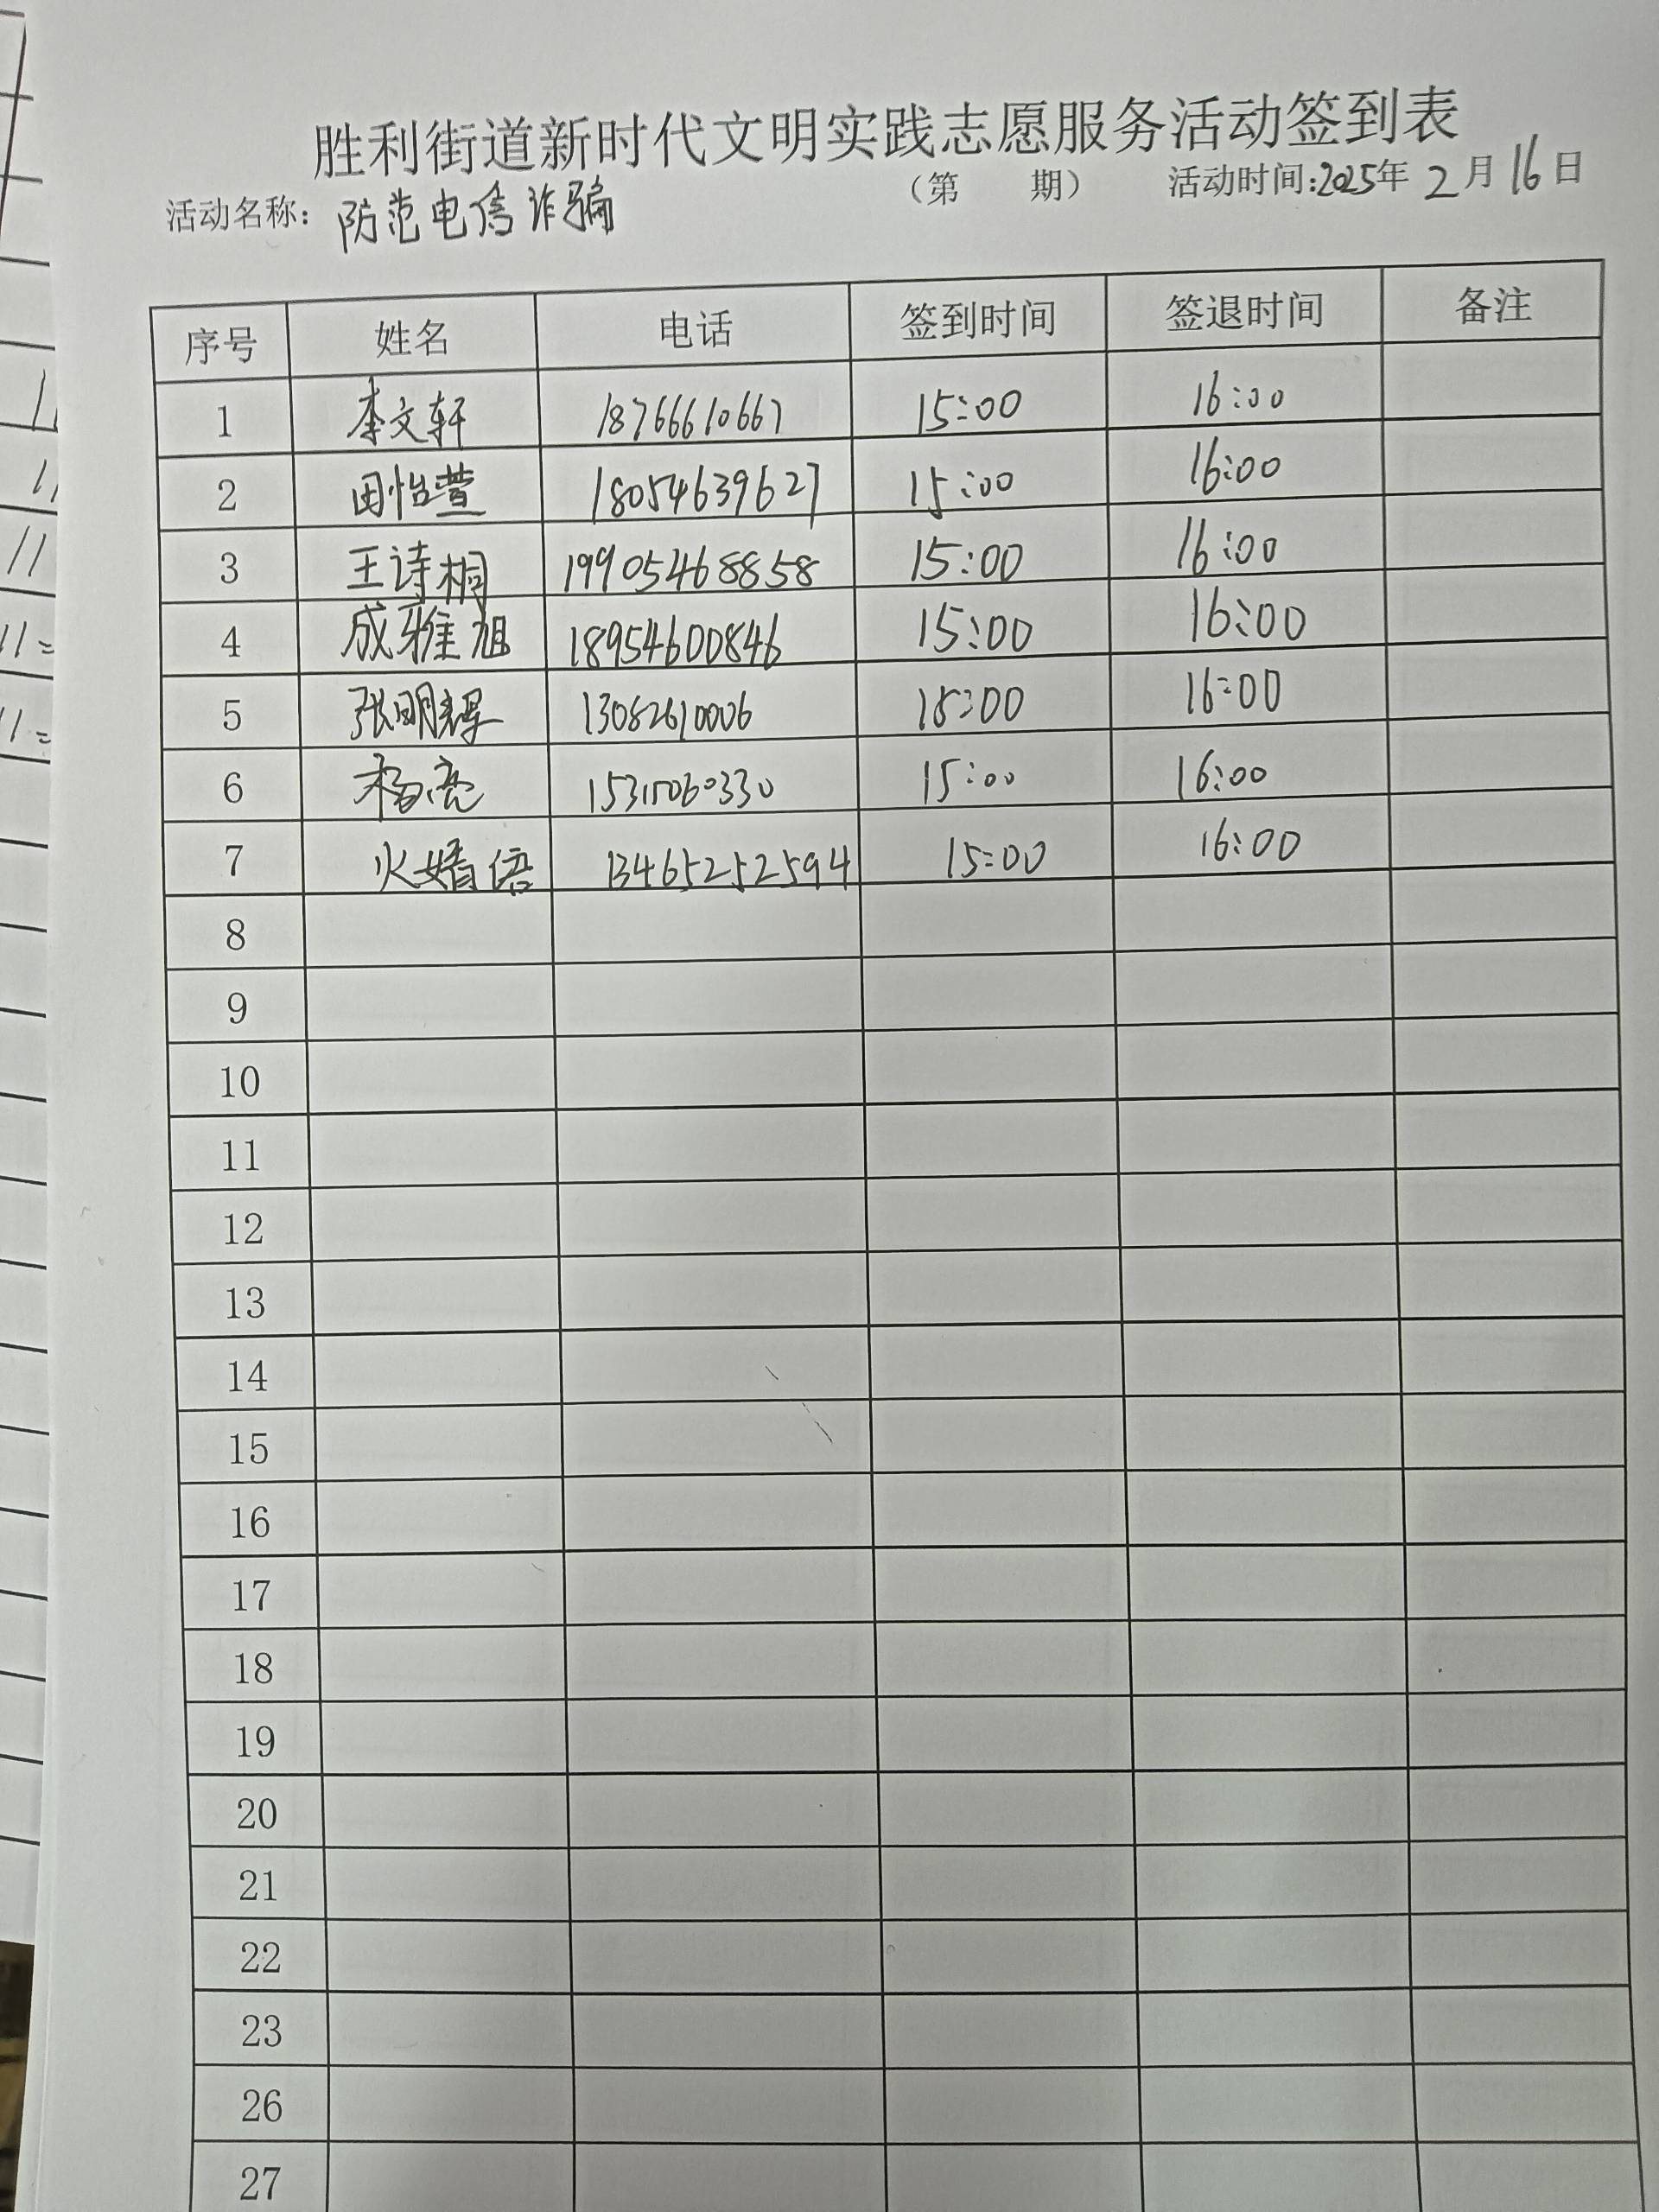 胜利街道新时代文明实践志愿服务活动签到表
活动名称：防范电信诈骗 （第 期） 活动时间:2025年 2月16日
序号 姓名 电话 签到时间 签退时间 备注
1 李文轩 18766610667 15:00 16:00
2 田怡萱 18054639627 15:00 16:00
3 王诗桐 19905468858 15:00 16:00
4 成雅旭 18954600846 15:00 16:00
5 张明辉 13082610006 15:00 16:00
6 杨亮 15315060330 15:00 16:00
7 火婧 13465252594 15:00 16:00
8
9
10
11
12
13
14
15
16
17
18
19
20
21
22
23
26
27